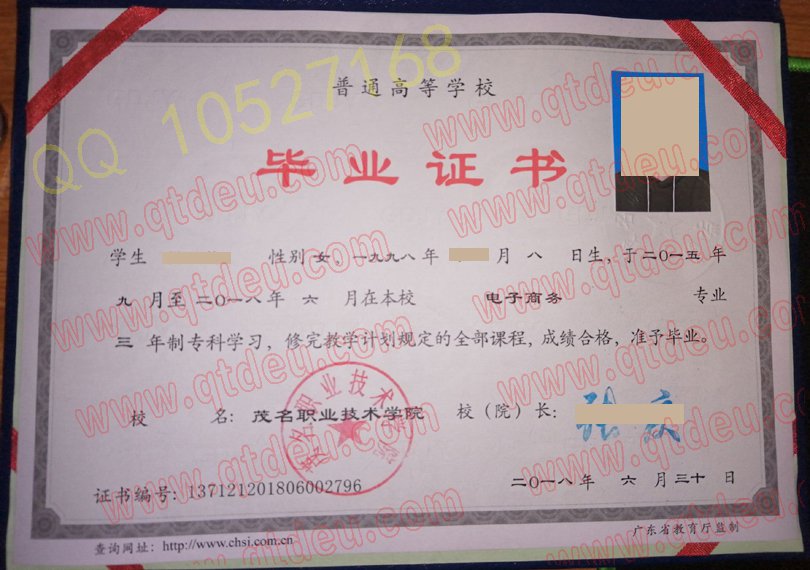 QQ 10527168
普通高等学校
毕业证书
学生 性别 女，一九九八年 月 八 日生，于二〇一五 年
九 月至 二〇一八年 六 月在本校 电子商务 专业
三 年制专科学习，修完教学计划规定的全部课程，成绩合格，准予毕业。
校 名：茂名职业技术学院 校（院）长：
茂名职业技术学院
证书编号：137121201806002796
二〇一八年 六 月三十 日
查询网址：http://www.chsi.com.cn
广东省教育厅监制
www.qtdeu.com
www.qtdeu.com
www.qtdeu.com
www.qtdeu.com
www.qtdeu.com
www.qtdeu.com
www.qtdeu.com
www.qtdeu.com